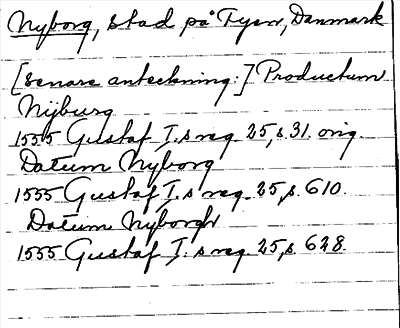 Nyborg, stad på Fyen, Danmark
[Senare anteckning:] Productum
Nijburg
1555 Gustaf I.s reg. 25, s. 31. orig.
Datum Nyborg
1555 Gustaf I.s reg. 25, s. 610.
Datum Nyborgh
1555 Gustaf I.s reg. 25, s. 628.